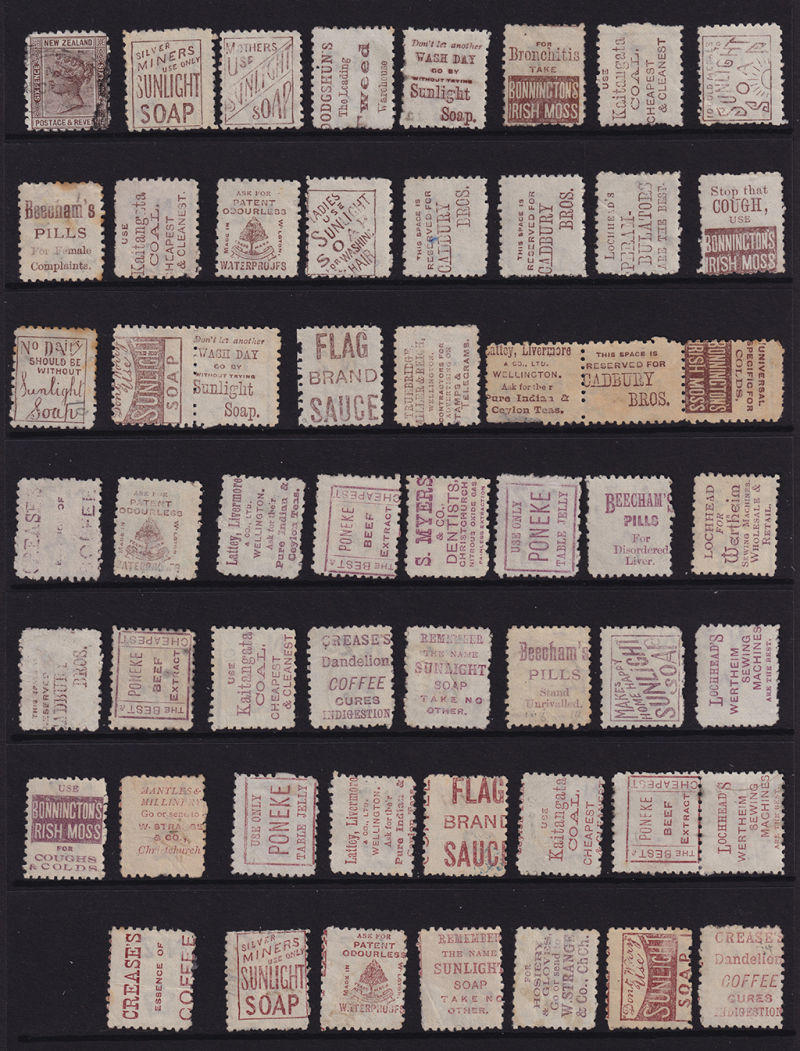 NEW ZEALAND
POSTAGE & REVE
SILVER
MINERS
USE ONLY
SUNLIGHT
SOAP
MOTHERS
USE
SUNLIGHT
SOAP
ODGSHUN'S
The Leading
Tweed
Warehouse
Don't let another
WASH DAY
GO BY
WITHOUT TRYING
Sunlight
Soap.
FOR
Bronchitis
TAKE
BONNINGTON'S
IRISH MOSS
USE
Kaitangata
COAL.
CHEAPEST
& CLEANEST
SUNLIGHT
SOA
Beecham's
PILLS
For Female
Complaints.
USE
Kaitangata
COAL.
CHEAPEST
& CLEANEST.
ASK FOR
PATENT
ODOURLESS
MADE IN
WATERPROOFS
LADIES
USE
SUNLIGHT
SOAP
FOR WASHING
HAIR
THIS SPACE IS
RESERVED FOR
CADBURY
BROS.
THIS SPACE IS
RESERVED FOR
CADBURY
BROS.
LOCHHEAD'S
PERAM-
BULATORS
ARE THE BEST.
Stop that
COUGH,
USE
BONNINGTON'S
IRISH MOSS
No Dairy
SHOULD BE
WITHOUT
Sunlight
Soap
Don't Worry
Use
SUNLIGHT
SOAP
Don't let another
WASH DAY
GO BY
WITHOUT TRYING
Sunlight
Soap.
FLAG
BRAND
SAUCE
TRUEBRIDGE
MILLER & REICH,
WELLINGTON.
CONTRACTORS FOR
ADVERTISING ON
STAMPS &
TELEGRAMS.
Lattey, Livermore
& CO., LTD.
WELLINGTON.
Ask for the r
Pure Indian &
Ceylon Teas.
THIS SPACE IS
RESERVED FOR
CADBURY
BROS.
BONNINGTON'S
IRISH MOSS
UNIVERSAL
SPECIFIC FOR
COLDS.
CREASE'S
OF
COFFEE
ASK FOR
PATENT
ODOURLESS
WATERPROOFS
Lattey, Livermore
& CO., LTD.
WELLINGTON.
Ask for the'r
Pure Indian &
Ceylon Teas.
CHEAPEST
PONEKE
BEEF
EXTRACT
THE BEST &
S. MYERS
& CO.
DENTISTS
CHRISTCHURCH
NITROUS OXIDE GAS
PAINLESS EXTRACTION
USE ONLY
PONEKE
TABLE JELLY
BEECHAM'S
PILLS
For
Disordered
Liver.
LOCHHEAD
FOR
Wertheim
SEWING MACHINES
WHOLESALE &
RETAIL.
THIS SPAC
RESERVED
CADBURY
BROS.
CHEAPEST
PONEKE
BEEF
EXTRACT
THE BEST &
USE
Kaitangata
COAL.
CHEAPEST
& CLEANEST
CREASE'S
Dandelion
COFFEE
CURES
INDIGESTION
REMEMBER
THE NAME
SUNLIGHT
SOAP
TAKE NO
OTHER.
Beecham's
PILLS
Stand
Unrivalled.
MAKES HAPPY
HOME
SUNLIGHT
SOAP
LOCHHEAD'S
WERTHEIM
SEWING
MACHINES
ARE THE BEST.
USE
BONNINGTON'S
IRISH MOSS
FOR
COUGHS
& COLDS.
MANTLES &
MILLINERY
Go or send to
W. STRANGE
& CO.,
Christchurch
USE ONLY
PONEKE
TABLE JELLY
Lattey, Livermore
& CO., LTD.
WELLINGTON.
Ask for the'r
Pure Indian &
Ceylon Teas.
FLAG
BRAND
SAUCE
USE
Kaitangata
COAL.
CHEAPEST
CHEAPEST
PONEKE
BEEF
EXTRACT
THE BEST &
LOCHHEAD'S
WERTHEIM
SEWING
MACHINES
ARE THE BEST.
CREASE'S
ESSENCE OF
COFFEE
SILVER
MINERS
USE ONLY
SUNLIGHT
SOAP
ASK FOR
PATENT
ODOURLESS
MADE IN
WATERPROOFS
REMEMBER
THE NAME
SUNLIGHT
SOAP
TAKE NO
OTHER.
FOR
HOSIERY
& GLOVES
Go or send to
W. STRANGE
& Co., ChCh.
Don't Worry
Use
SUNLIGHT
SOAP
CREASE'S
Dandelion
COFFEE
CURES
INDIGESTION